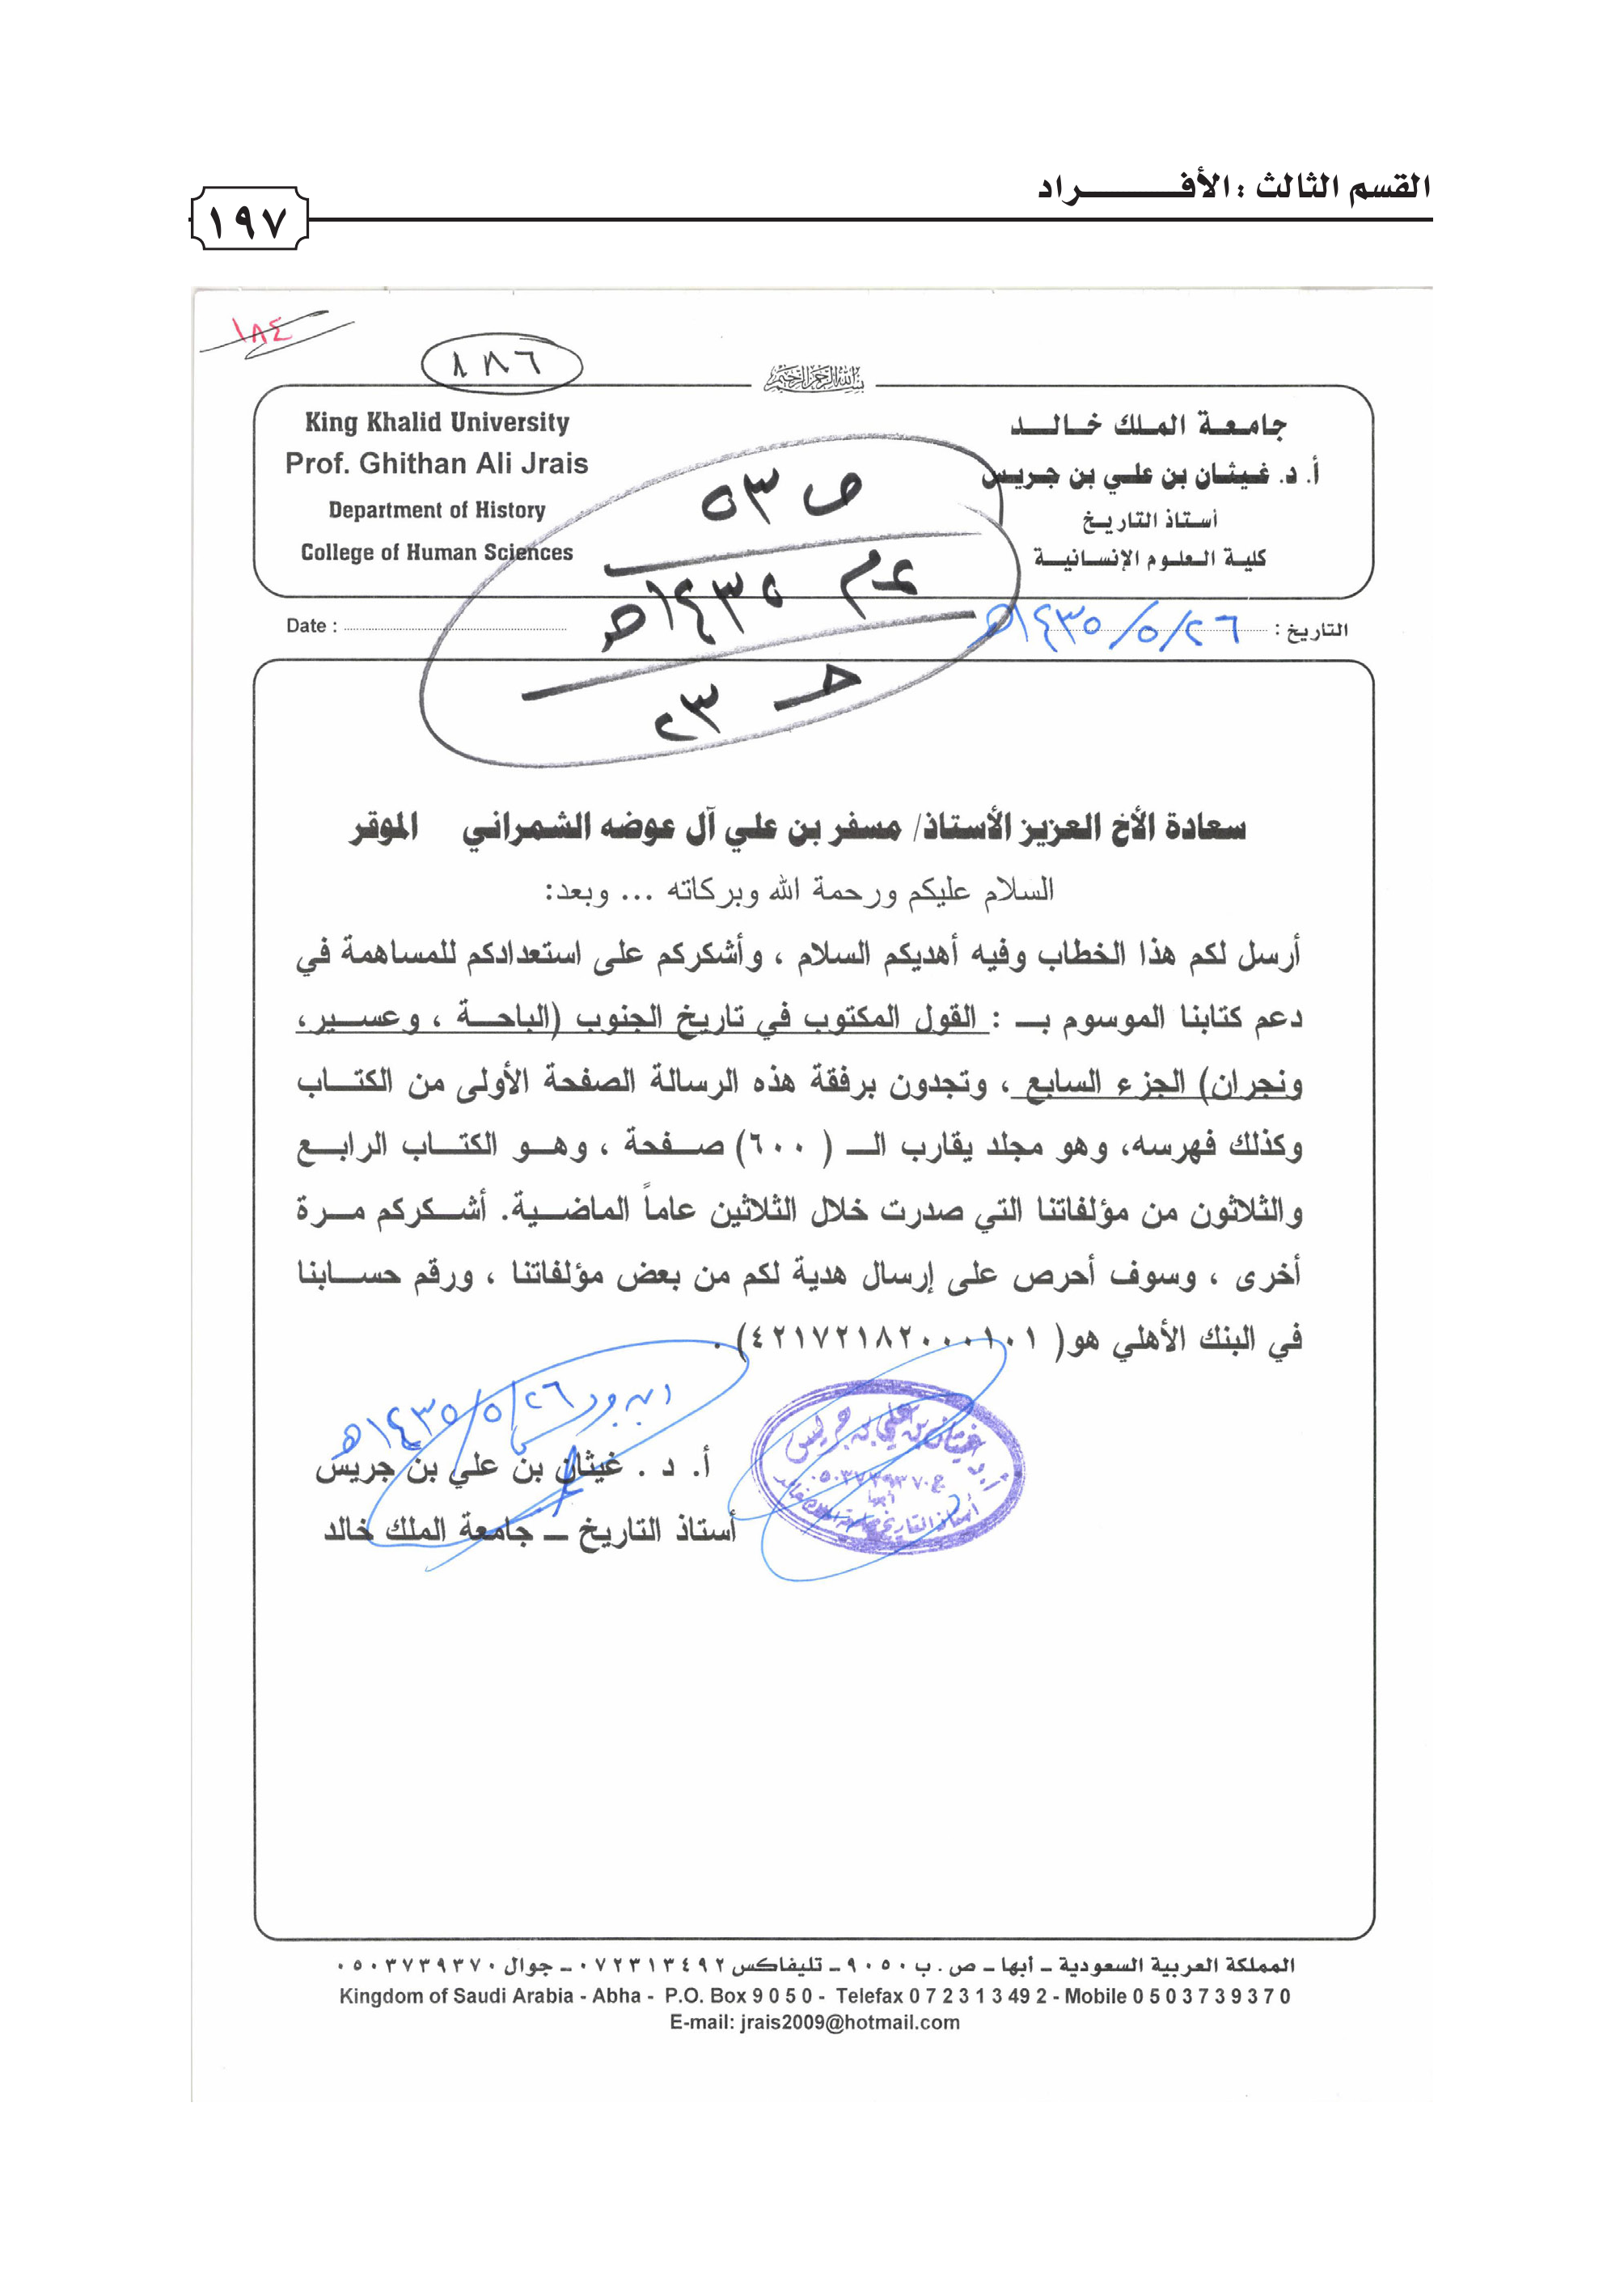 القسم الثالث : الأفــــراد
١٩٧
١٨٤
٨٨٦
بسم الله الرحمن الرحيم
King Khalid University
Prof. Ghithan Ali Jrais
Department of History
College of Human Sciences
جامعة الملك خالد
أ. د. غيثان بن علي بن جريس
أستاذ التاريخ
كلية العلوم الإنسانية
ص ٥٣
عام ١٤٣٥هـ
حـ ٢٣
Date :
التاريخ : ٢٦/٥/١٤٣٥هـ
سعادة الأخ العزيز الأستاذ/ مسفر بن علي آل عوضه الشمراني الموقر
السلام عليكم ورحمة الله وبركاته ... وبعد:
أرسل لكم هذا الخطاب وفيه أهديكم السلام ، وأشكركم على استعدادكم للمساهمة في
دعم كتابنا الموسوم بـ : القول المكتوب في تاريخ الجنوب (الباحة ، وعسير،
ونجران) الجزء السابع ، وتجدون برفقة هذه الرسالة الصفحة الأولى من الكتاب
وكذلك فهرسه، وهو مجلد يقارب الـ ( ٦٠٠) صفحة ، وهو الكتاب الرابع
والثلاثون من مؤلفاتنا التي صدرت خلال الثلاثين عاماً الماضية. أشكركم مرة
أخرى ، وسوف أحرص على إرسال هدية لكم من بعض مؤلفاتنا ، ورقم حسابنا
في البنك الأهلي هو( ٤٢١٧٢١٨٢٠٠٠١٠١).
٢٦/٥/١٤٣٥هـ
أ. د . غيثان بن علي بن جريس
أستاذ التاريخ ــ جامعة الملك خالد
أ. د غيثان بن علي بن جريس
ج. ٠٥٠٣٧٣٩٣٧٠
أبها
أستاذ التاريخ بجامعة الملك خالد
المملكة العربية السعودية ــ أبها ــ ص . ب ٩٠٥٠ ــ تليفاكس ٠٧٢٣١٣٤٩٢ ــ جوال ٠٥٠٣٧٣٩٣٧٠
Kingdom of Saudi Arabia - Abha - P.O. Box 9 0 5 0 - Telefax 0 7 2 3 1 3 49 2 - Mobile 0 5 0 3 7 3 9 3 7 0
E-mail: jrais2009@hotmail.com